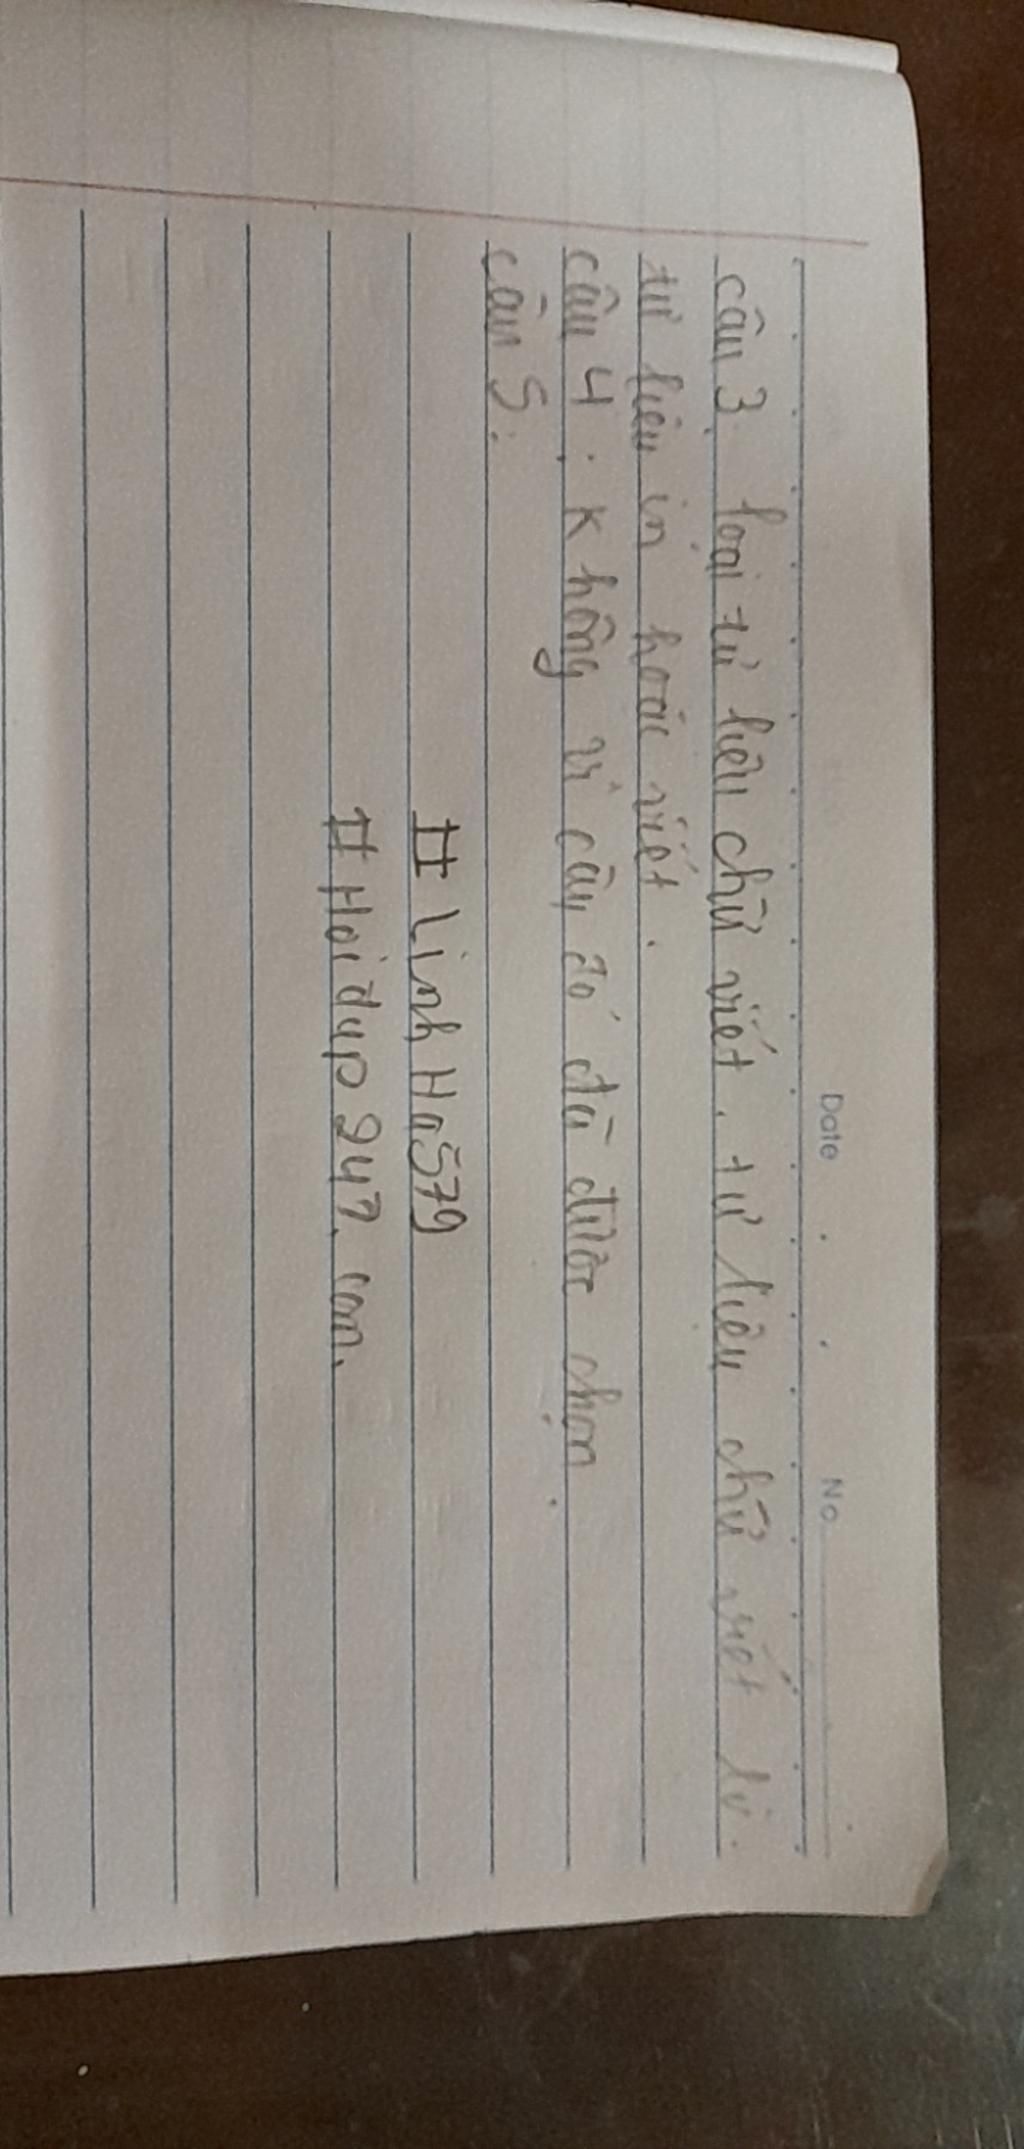 Date No
câu 3. loại tư liệu chữ viết. tư liệu chữ viết là.
tư liệu in hoặc viết.
câu 4 : Không vì câu đó đã được chọn.
câu 5:
# Linh Ha579
# Hoidap247.com.